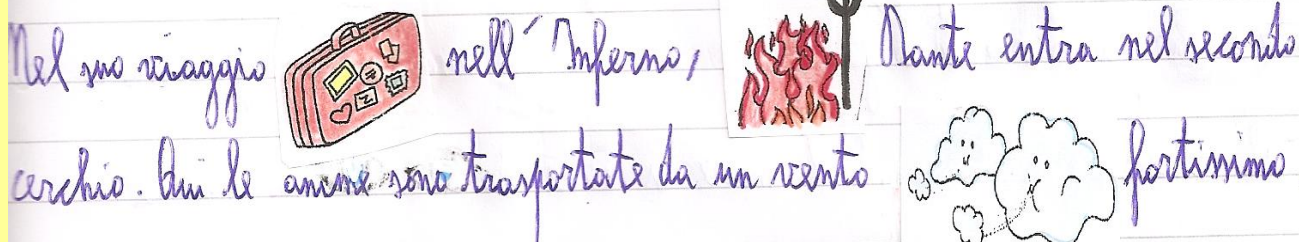 Nel suo viaggio nell' Inferno, Dante entra nel secondo
cerchio. Qui le anime sono trasportate da un vento fortissimo